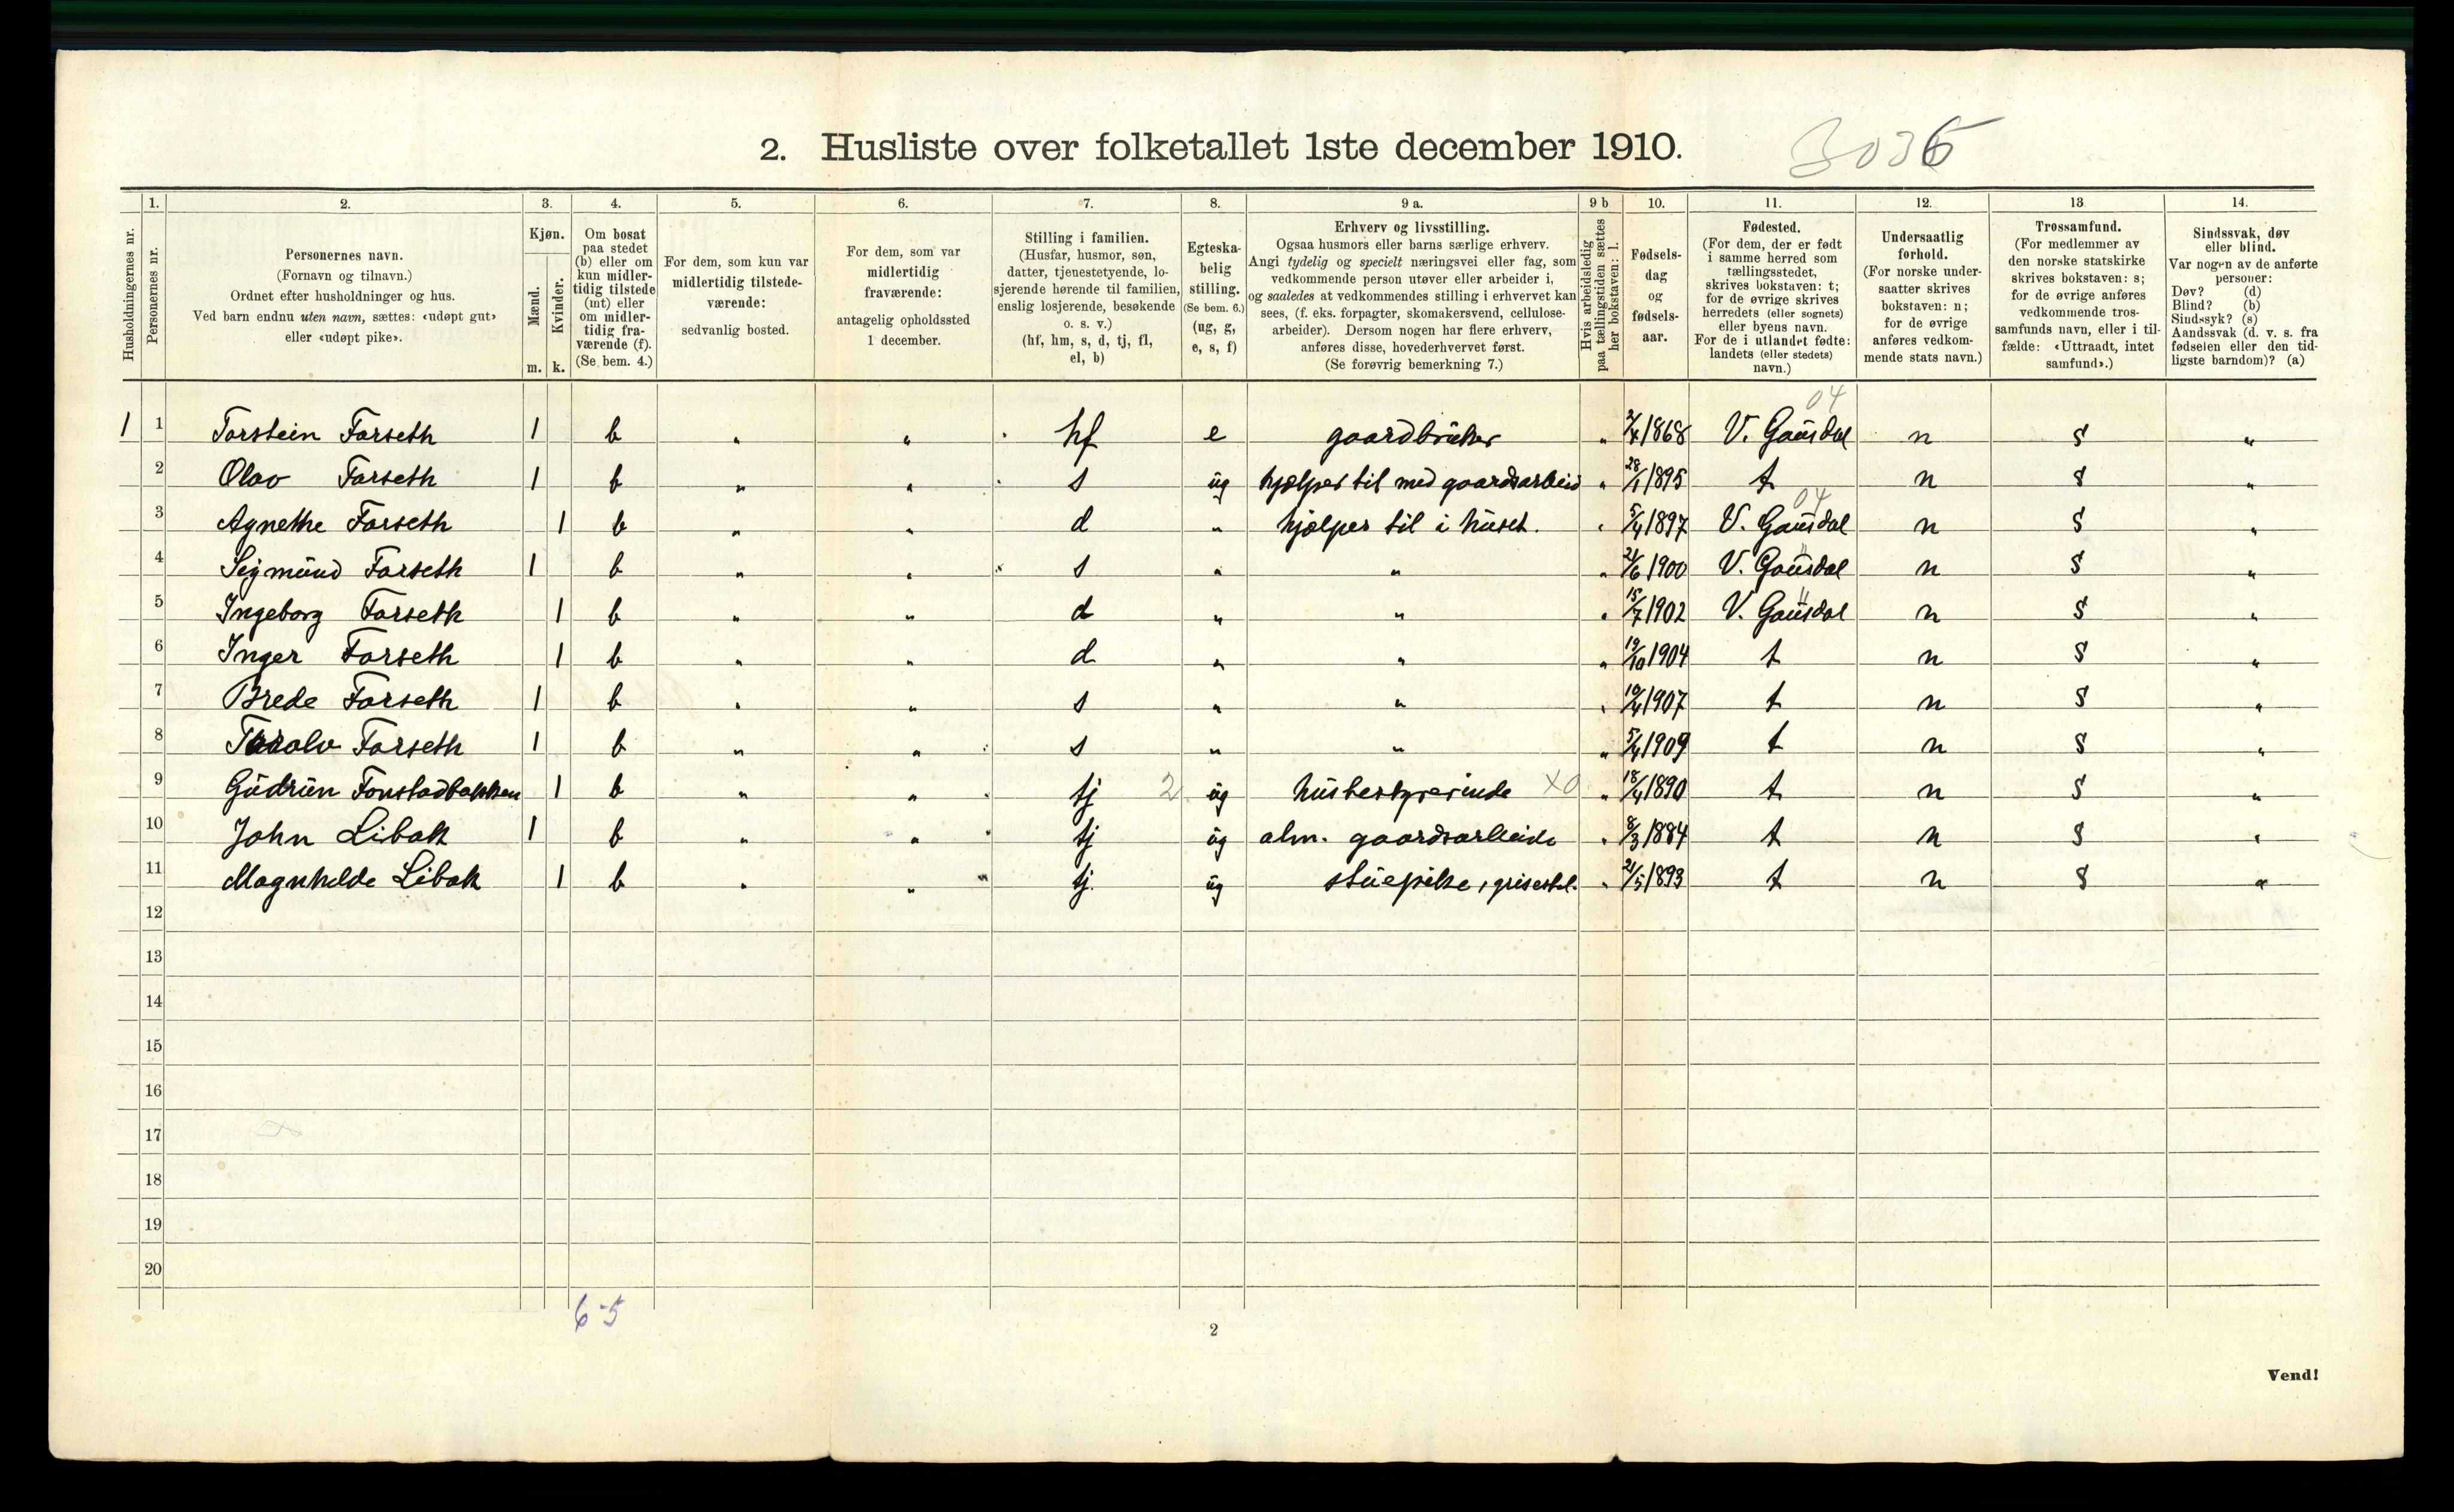 2. Husliste over folketallet 1ste december 1910.
1. 2. 3. 4. 5. 6. 7. 8. 9 a. 9 b 10. 11. 12. 13 14.
Husholdningernes nr.
Personernes nr.
Personernes navn.
(Fornavn og tilnavn.)
Ordnet efter husholdninger og hus.
Ved barn endnu uten navn, sættes: «udøpt gut»
eller «udøpt pike».
Kjøn.
Mænd.
Kvinder.
m. k.
Om bosat
paa stedet
(b) eller om
kun midler-
tidig tilstede
(mt) eller
om midler-
tidig fra-
værende (f).
(Se bem. 4.)
For dem, som kun var
midlertidig tilstede-
værende:
sedvanlig bosted.
For dem, som var
midlertidig
fraværende:
antagelig opholdssted
1 december.
Stilling i familien.
(Husfar, husmor, søn,
datter, tjenestetyende, lo-
sjerende hørende til familien,
enslig losjerende, besøkende
o. s. v.)
(hf, hm, s, d, tj, fl,
el, b)
Egteska-
belig
stilling.
(Se bem. 6.)
(ug, g,
e, s, f)
Erhverv og livsstilling.
Ogsaa husmors eller barns særlige erhverv.
Angi tydelig og specielt næringsvei eller fag, som
vedkommende person utøver eller arbeider i,
og saaledes at vedkommendes stilling i erhvervet kan
sees, (f. eks. forpagter, skomakersvend, cellulose-
arbeider). Dersom nogen har flere erhverv,
anføres disse, hovederhvervet først.
(Se forøvrig bemerkning 7.)
Hvis arbeidsledig
paa tællingstiden sættes
her bokstaven: l.
Fødsels-
dag
og
fødsels-
aar.
Fødested.
(For dem, der er født
i samme herred som
tællingsstedet,
skrives bokstaven: t;
for de øvrige skrives
herredets (eller sognets)
eller byens navn.
For de i utlandet fødte:
landets (eller stedets)
navn.)
Undersaatlig
forhold.
(For norske under-
saatter skrives
bokstaven: n;
for de øvrige
anføres vedkom-
mende stats navn.)
Trossamfund.
(For medlemmer av
den norske statskirke
skrives bokstaven: s;
for de øvrige anføres
vedkommende tros-
samfunds navn, eller i til-
fælde: «Uttraadt, intet
samfund».)
Sindssvak, døv
eller blind.
Var nogen av de anførte
personer:
Døv? (d)
Blind? (b)
Sindssyk? (s)
Aandssvak (d. v. s. fra
fødselen eller den tid-
ligste barndom)? (a)
04
1 1 Torstein Forseth 1 b " " hf e gaardbruker " 2/4 1868 V. Gausdal n s "
2 Olav Forseth 1 b " " s ug hjælper til med gaardsarbeid " 28/1 1895 t n s "
04
3 Agnethe Forseth 1 b " " d " hjælper til i huset. " 5/4 1897 V. Gausdal n s "
4 Sigmund Forseth 1 b " " s " " " 21/6 1900 V. Gausdal n s "
5 Ingeborg Forseth 1 b " " d " " " 15/7 1902 V. Gausdal n s "
6 Inger Forseth 1 b " " d " " " 19/10 1904 t n s "
7 Brede Forseth 1 b " " s " " " 10/4 1907 t n s "
8 Forseth 1 b " " s " " " 5/4 1909 t n s "
9 Gudrun Fonstadbakken 1 b " " tj 2 ug husbestyrerinde X0 " 18/4 1890 t n s "
10 John Libak 1 b " " tj ug alm. gaardsarbeide " 8/3 1884 t n s "
11 Magnhilde Libak 1 b " " tj. ug stuepike, grisestel. " 21/5 1893 t n s "
12
13
14
15
16
17
18
19
20
6-5
2
Vend!